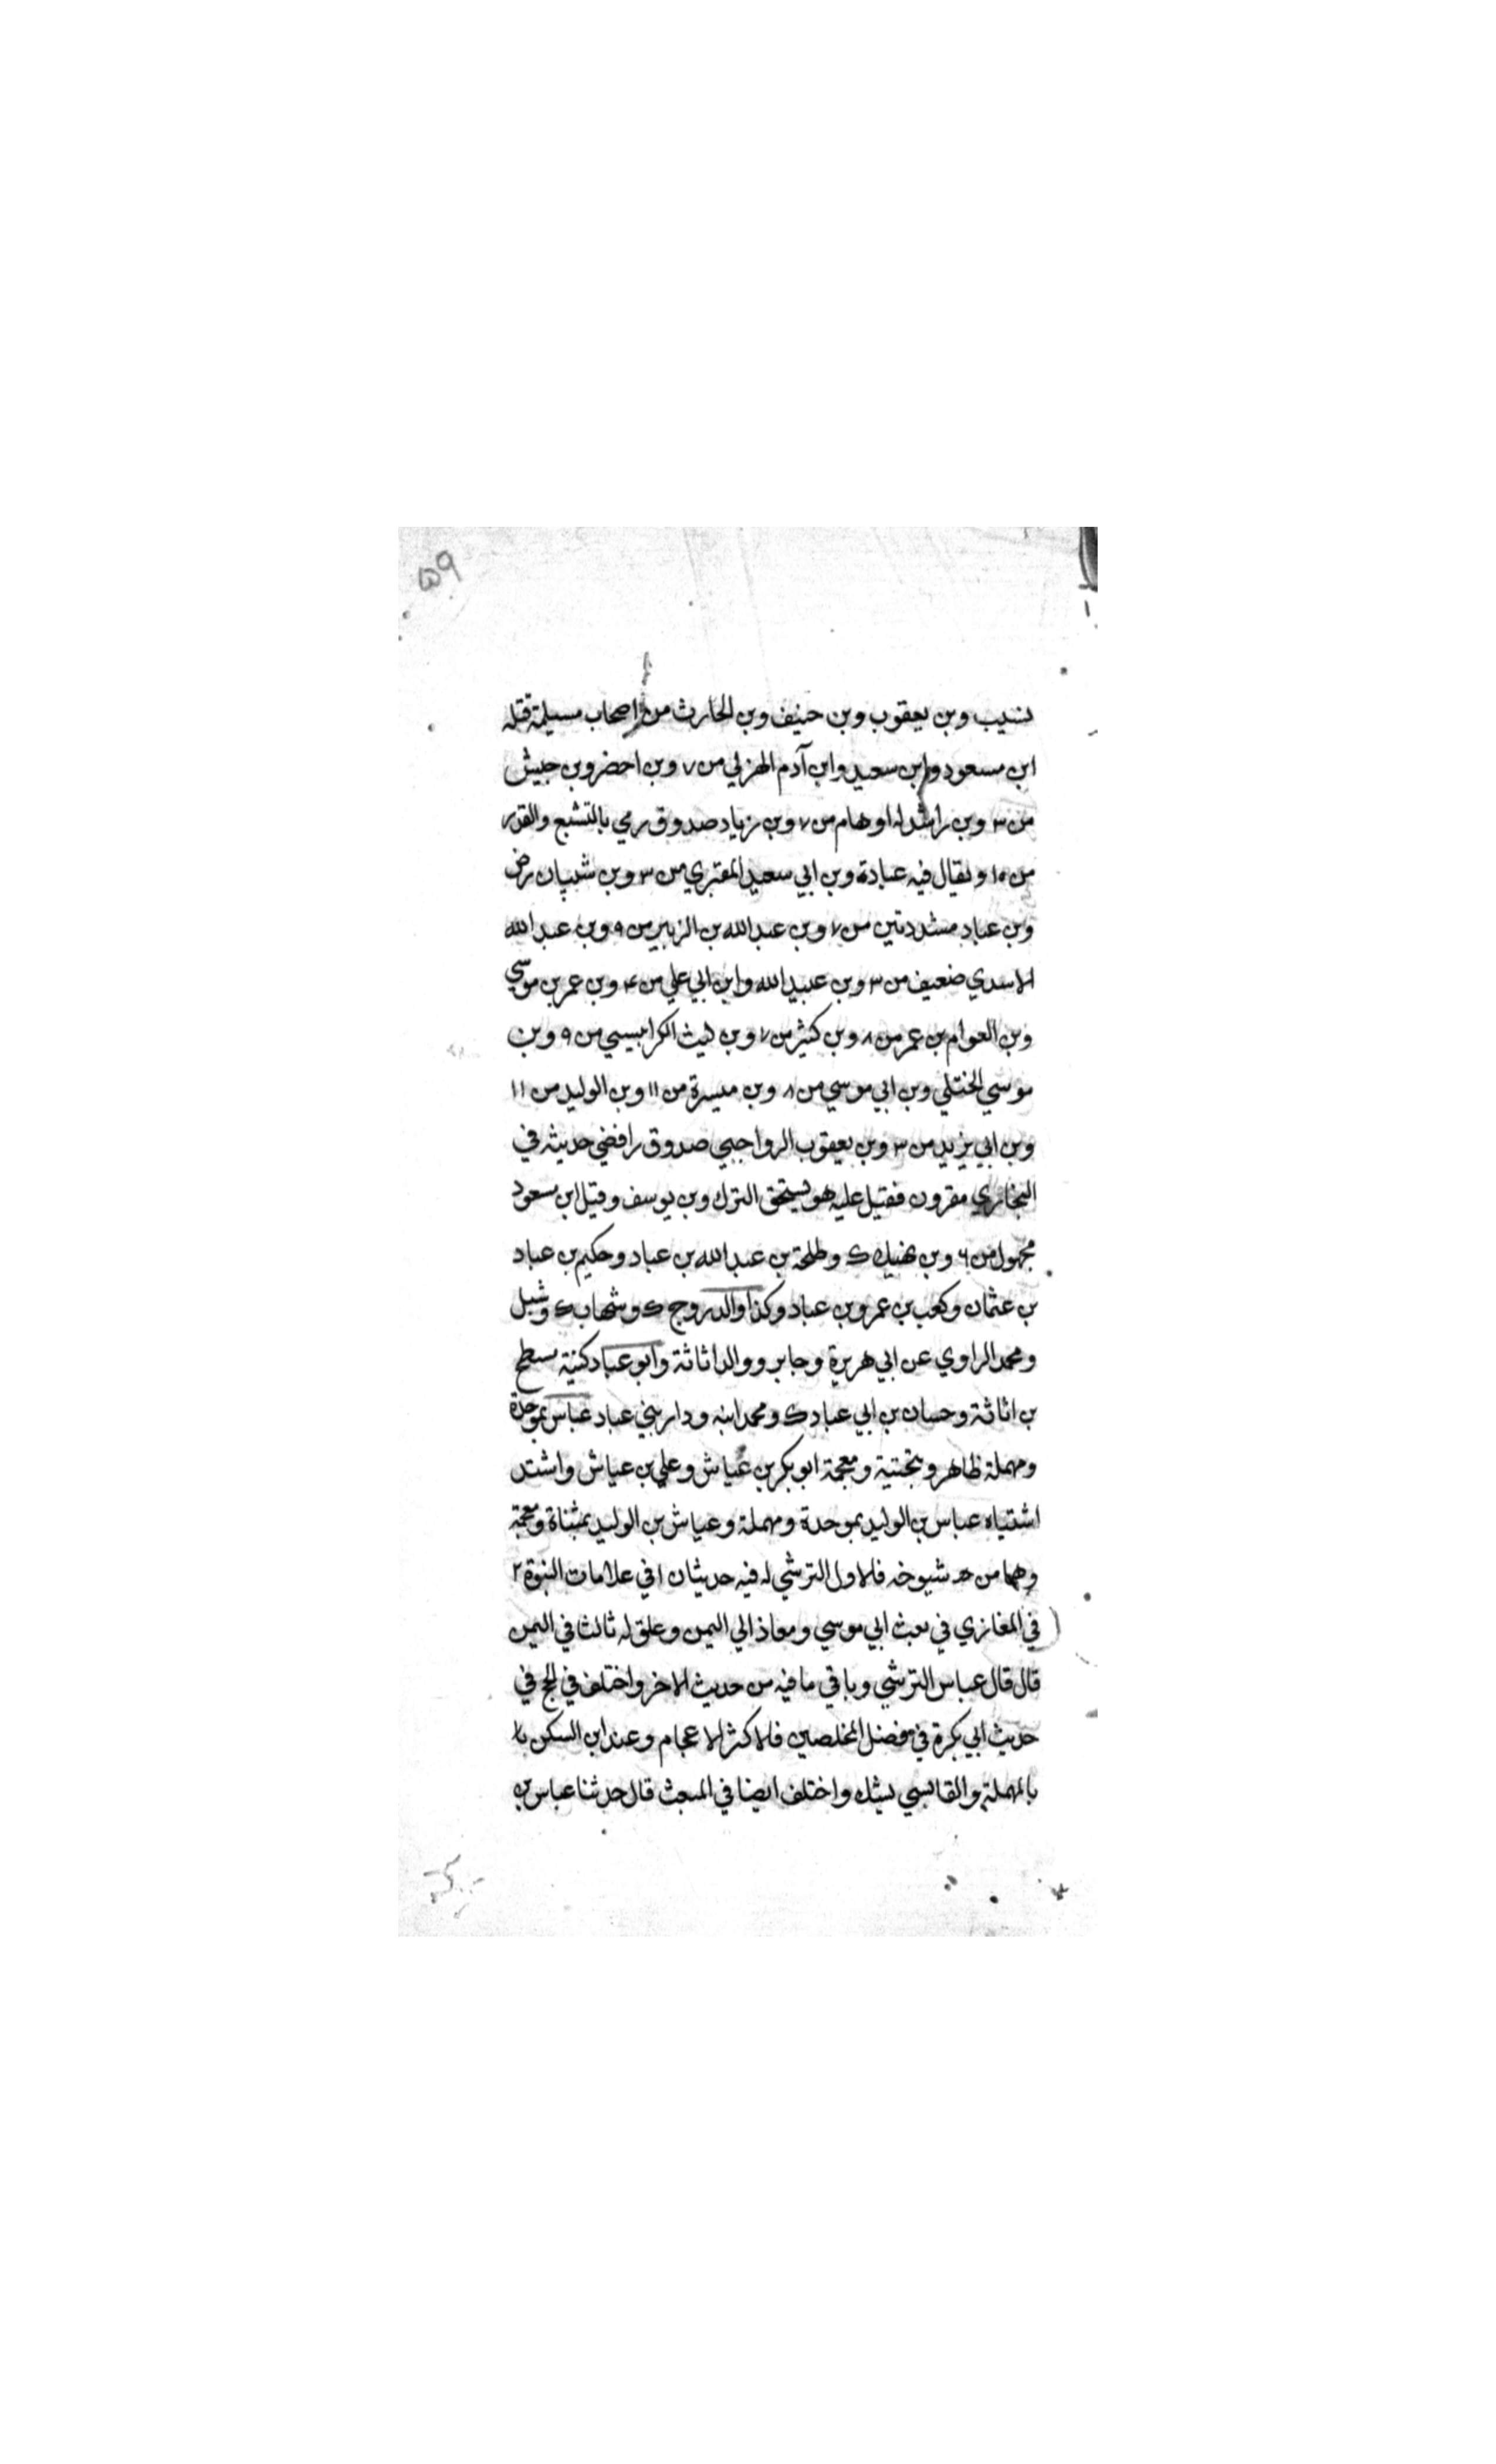 ٥٩
نسيب وبن يعقوب وبن حنيف وبن الحارث من اصحاب مسيلمة قتله
ابن مسعود وابن سعيد وابن آدم الهزلي من ٧ وبن اخضر وبن حبيش
من ٣ وبن راشد له اوهام من ٧ وبن زياد صدوق رمي بالتشيع والقدر
من ١٠ ويقال فيه عبادة وبن ابي سعيد المقبري من ٣ وبن شيبان رض
وبن عباد مشددتين من ٧ وبن عبد الله بن الزبير من ٩ وبن عبد الله
الاسدي ضعيف من ٣ وبن عبيد الله وابن ابي علي من ٤ وبن عمر بن موسي
وبن العوام بن عمر من ٨ وبن كثير من ٧ وبن ليث الكرابيسي من ٩ وبن
موسي الختلي وبن ابي موسي من ٨ وبن ميسرة من ١١ وبن الوليد من ١١
وبن ابي يزيد من ٣ وبن يعقوب الرواجبي صدوق رافضي حديثه في
البخاري مقرون فقيل عليه هو يستحق الترك وبن يوسف وقيل ابن مسعود
مجهول من ٦ وبن نهيك ك وطلحة بن عبد الله بن عباد وحكيم بن عباد
بن عثمان وكعب بن عمرو بن عباد وكذا والد روح ك وشهاب ك وشبل
ومحمد الراوي عن ابي هريرة وجابر ووالد اثاثة وابو عباد كنية مسطح
بن اثاثة وحسان بن ابي عباد ك ومحمد ابنه ودار بني عباد عباس بموحدة
ومهملة ظاهر وبتحتية ومعجمة ابو بكر بن عياش وعلي بن عياش واشتد
اشتباه عباس بن الوليد بموحدة ومهملة وعياش بن الوليد بمثناة ومعجمة
وهما من شيوخه فلاول الترشي له فيه حديثان ١ في علامات النبوة ٢
في المغازي في بعث ابي موسي ومعاذ الي اليمن وعلق له ثالث في اليمن
قال قال عباس الترشي وباقي ما فيه من حديث الاخر واختلف في الحج في
حديث ابي بكرة في فضل المخلصين فلاكثر الاعجام وعند ابن السكن با
بالمهملة والقابسي يشك واختلف ايضا في المبعث قال حدثنا عباس بن